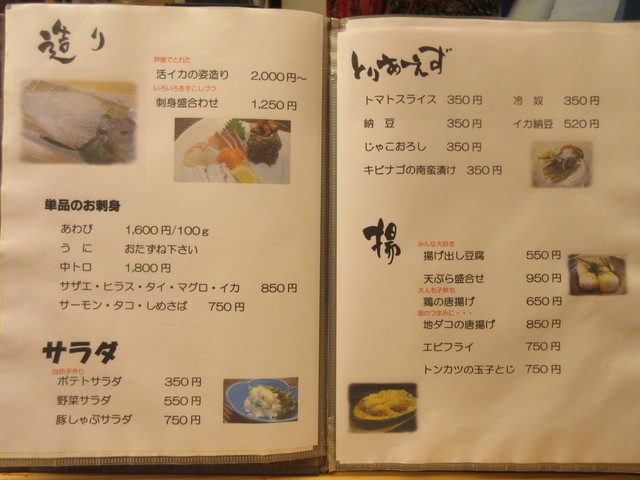 造り
芦屋でとれた
活イカの姿造り 2,000円～
いろいろをすこしづつ
刺身盛合わせ 1,250円
単品のお刺身
あわび 1,600円/100g
うに おたずね下さい
中トロ 1,800円
サザエ・ヒラス・タイ・マグロ・イカ 850円
サーモン・タコ・しめさば 750円
サラダ
当店手作り
ポテトサラダ 350円
野菜サラダ 550円
豚しゃぶサラダ 750円
とりあえず
トマトスライス 350円 冷奴 350円
納豆 350円 イカ納豆 520円
じゃこおろし 350円
キビナゴの南蛮漬け 350円
揚
みんな大好き
揚げ出し豆腐 550円
天ぷら盛合せ 950円
大人も子供も
鶏の唐揚げ 650円
酒のつまみに・・・
地ダコの唐揚げ 850円
エビフライ 750円
トンカツの玉子とじ 750円